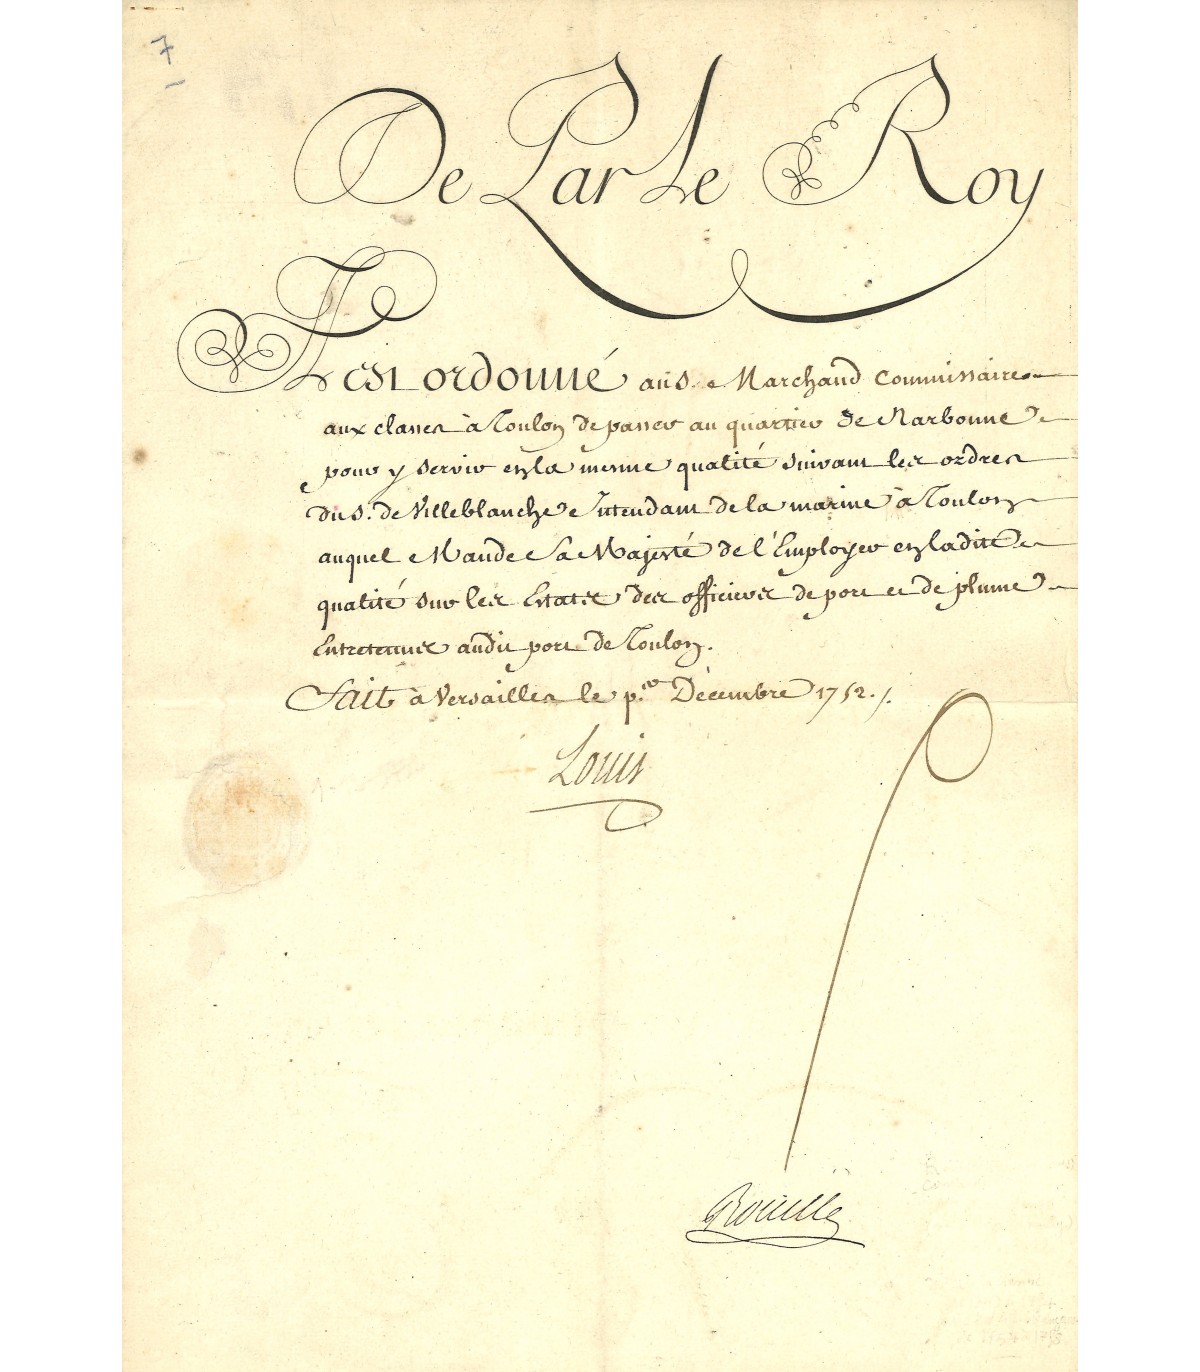 7
De Par Le Roy
Il est ordonné au S. Marchand Commissaire
aux classes à Toulon de passer au quartier de Narbonne
pour y servir en la mesme qualité suivant les ordres
du S. de Villeblanche Intendant de la marine à Toulon
auquel Mande Sa Majesté de l'Employer en ladite
qualité sur les Estats des officiers de port et de plume
Entretenus audit port de Toulon.
Fait à Versailles le p.er Décembre 1752./.
Louis
Rouillé